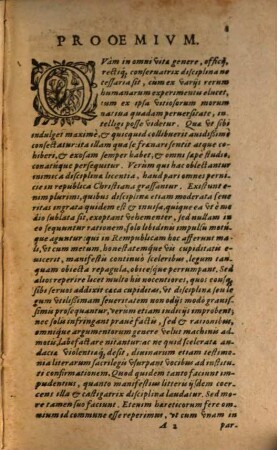 PROOEMIVM.
QVàm in omni vita genere, officij,
rectiq́; conseruatrix disciplina ne-
cessaria sit, cùm ex varijs rerum
humanarum experimentis elucet,
tum ex ipsa vitiosorum morum
natiua quadam peruersitate, in-
telligi posse videtur. Qua vt sibi
indulget maximè, & quicquid collibuerit auidissimè
consectatur: ita illam quasi frænare sentit atque co-
hibere, & exosam semper habet, & omni sæpe studio,
conatuque persequitur. Verùm qui hac oblectantur
inimica disciplinæ licentia, haud pars omni perni-
cie in republica Christiana grassantur. Existunt e-
nim plurimi, quibus disciplina etiam moderata seue-
ritas ingrata quidem est & inuisa, quique vt è me
dio sublata sit, exoptant vehementer, sed nullam in
eo sequuntur rationem. solo libidinis impulsu motú-
que aguntur qui in Rempublicam hoc asserunt mali,
vt cum metum, honestatemque vti cupiditate eui-
cerint, manifestis continuò sceleribus, legum tan-
quam obiecta repagula, obicesque perrumpant. Sed
alios reperire licet multo his nocentiores, quos
sibi seruos addixit cæca cupiditas. Vt disciplinæ, & le-
gum vtilissimam seueritatem non odijs modò grauis-
simis prosequantur, verùm etiam indicijs improbent,
nec solis infringant prauè factis, sed & rationibus,
omnique argumentorum genere velut machinis ad-
motis labefactare nitantur: ac ne quid scelerata au-
dacia violentiaq́; desit, diuinarum etiam testimo-
nia literarum sacrilegis vsurpant vocibus ad institu-
ti confirmationem. Quod quidem tanto faciunt im-
pudentius, quanto manifestius litteris ijsdem coer-
cens illa & castigatrix disciplina laudatur. Sed mo-
re tamen suo faciunt. Etenim hæreticorum ferè om-
nium id commune esse reperimus, vt cum vnam in
A 2 par-